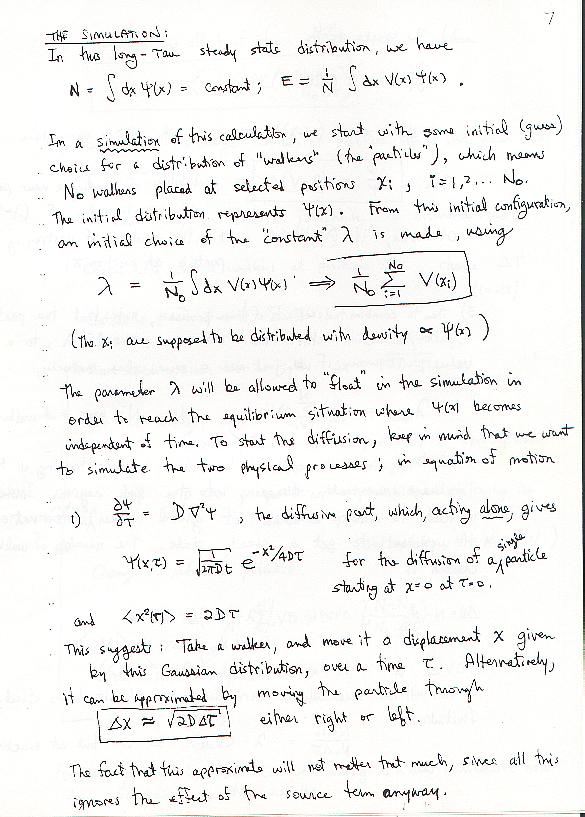 7
THE SIMULATION:
In this long-Tau steady state distribution, we have
N = ∫ dx Ψ(x) = constant ; E = 1/N ∫ dx V(x) Ψ(x) .
In a simulation of this calculation, we start with some initial (guess)
choice for a distribution of "walkers" (the "particles"), which means
No walkers placed at selected positions xi , i=1,2,... No.
The initial distribution represents Ψ(x). From this initial configuration,
an initial choice of the "constant" λ is made, using
λ = 1/No ∫ dx V(x) Ψ(x) ⇒ 1/No Σ_{i=1}^{No} V(xi)
(The xi are supposed to be distributed with density ∝ Ψ(x))
The parameter λ will be allowed to "float" in the simulation in
order to reach the equilibrium situation where Ψ(x) becomes
independent of time. To start the diffusion, keep in mind that we want
to simulate the two physical processes ; in equation of motion
1) ∂Ψ/∂τ = D ∇²Ψ , the diffusive part, which, acting alone, gives
Ψ(x,τ) = 1/√(2πDt) e^{-x²/4Dτ} for the diffusion of a single particle
starting at x=0 at τ=0.
and <x²(τ)> = 2Dτ
This suggests: Take a walker, and move it a displacement X given
by this Gaussian distribution, over a time τ. Alternatively,
it can be approximated by moving the particle through
Δx ≈ √2DΔτ either right or left.
The fact that this approximate will not matter that much, since all this
ignores the effect of the source term anyway.